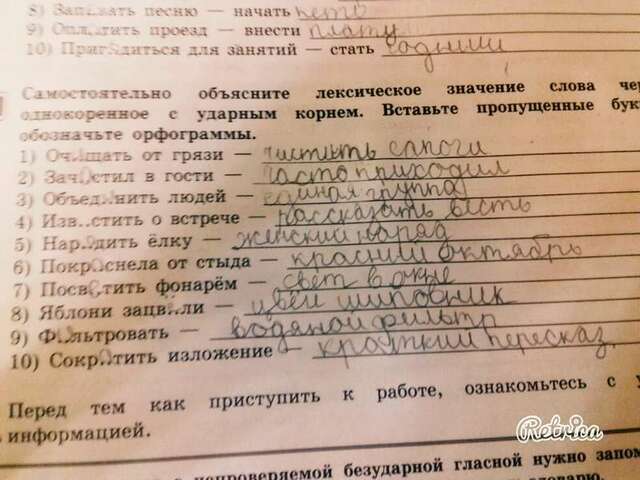 8) Запевать песню — начать петь
9) Оплатить проезд — внести плату
10) Пригодиться для занятий — стать годними
Самостоятельно объясните лексическое значение слова чер
однокоренное с ударным корнем. Вставьте пропущенные бук
обозначьте орфограммы.
1) Очищать от грязи — чистить сапоги
2) Зачастил в гости — часто приходил
3) Объединить людей — единая группа
4) Изв..стить о встрече — рассказать весть
5) Нарядить ёлку — женский наряд
6) Покраснела от стыда — красний октябрь
7) Посветить фонарём — свет в окне
8) Яблони зацв..ли — цвей шиповник
9) Фильтровать — водяной фильтр
10) Сократить изложение — краткий пересказ.
Перед тем как приступить к работе, ознакомьтесь с у
информацией.
Retrica
непроверяемой безударной гласной нужно запом